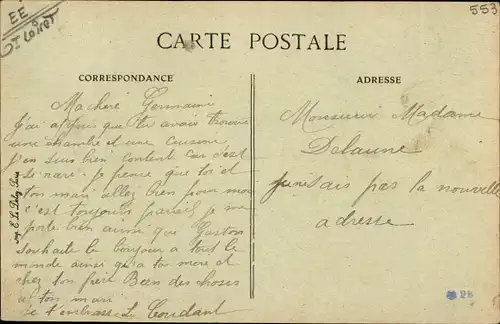 EE
553
CARTE POSTALE
CORRESPONDANCE
ADRESSE
Ma cheré Germaini
J'ai appui que tu avais trouvé
une chambre et une cuisine
J'en suis bien contente car c'est
si rare. je pence que toi et
ton mari allez bien pour moi
c'est toujours pareil je me
porte bien ainsi que Gaston
Souhaite le bonjour a tout le
monde ainsi qu'a ta mere et
chez ton frere Been des choses
a ton mari
Je t'embrasse
Monsieur Madame
Delaune
je ne sais pas la nouvelle
adresse
Imp. E. Le Deley, Paris